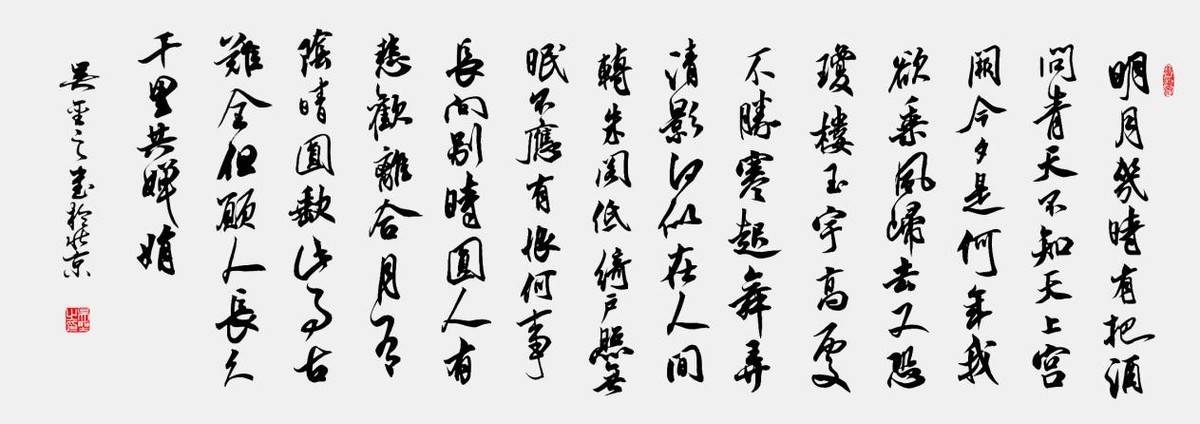 明月幾時有把酒
問青天不知天上宮
闕今夕是何年我
欲乘風歸去又恐
瓊樓玉宇高處
不勝寒起舞弄
清影何似在人間
轉朱閣低綺戶照無
眠不應有恨何事
長向別時圓人有
悲歡離合月有
陰晴圓缺此事古
難全但願人長久
千里共嬋娟
吳之書於北京